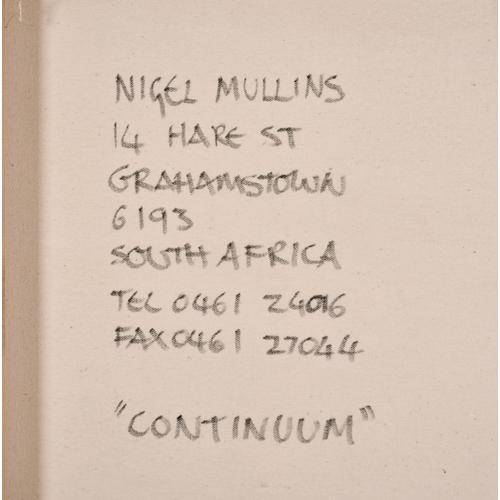 NIGEL MULLINS
14 HARE ST
GRAHAMSTOWN
6193
SOUTH AFRICA
TEL 0461 24016
FAX 0461 27044
"CONTINUUM"